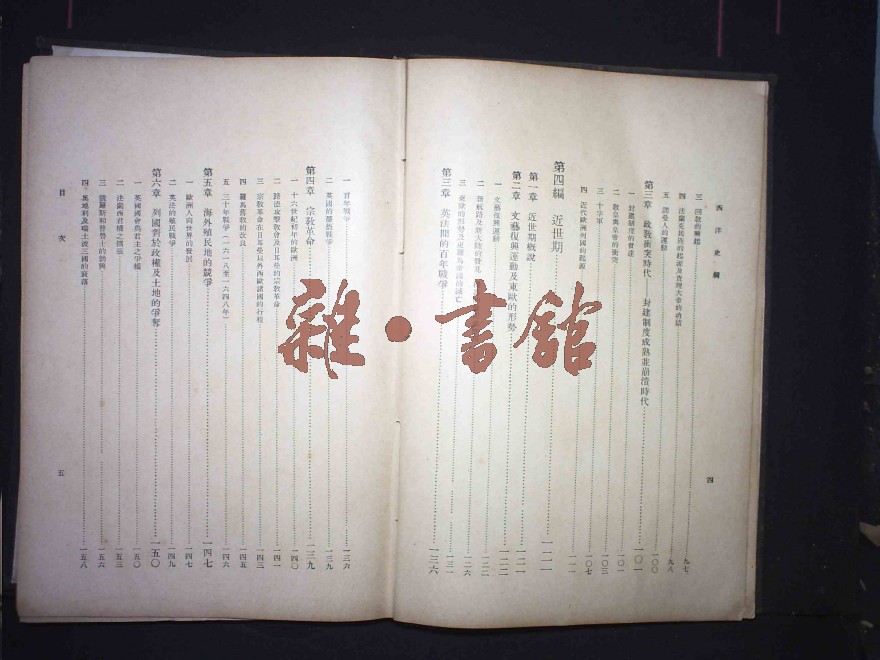 西洋史綱
三 回教的興起 九七
四 法蘭克民族的起源及查理大帝的功績 九八
五 諾曼人的運動 一〇〇
第三章 政教衝突時代——封建制度成熟並崩潰時代 一〇一
一 封建制度的發達 一〇一
二 教皇與皇帝的衝突 一〇一
三 十字軍 一〇三
四 近代歐洲列國的起源 一〇七
第四編 近世期 一一一
第一章 近世期概說 一一一
第二章 文藝復興運動及東歐的形勢 一二一
一 文藝復興運動 一二一
二 新航路及新大陸的發見 一二二
三 東歐的形勢及東羅馬帝國的滅亡 一二六
第三章 英法間的百年戰爭 一三六
四
一 百年戰爭 一三六
二 英國的薔薇戰爭 一三九
第四章 宗教革命 一三九
一 十六世紀初年的歐洲 一四〇
二 路德攻擊教會及日耳曼的宗教革命 一四一
三 宗教革命在日耳曼以外西歐諸國的行程 一四三
四 羅馬舊教的改良 一四五
五 三十年戰爭(一六一八至一六四八年) 一四六
第五章 海外殖民地的競爭 一四七
一 歐洲人向世界的發展 一四七
二 英法的殖民戰爭 一四九
第六章 列國對於政權及土地的爭奪 一五〇
一 英國國會與君主之爭權 一五〇
二 法蘭西君權之擴張 一五三
三 俄羅斯和普魯士的勃興 一五六
四 奧地利及瑞士波三國的衰落 一五八
目次
五
雜·書館